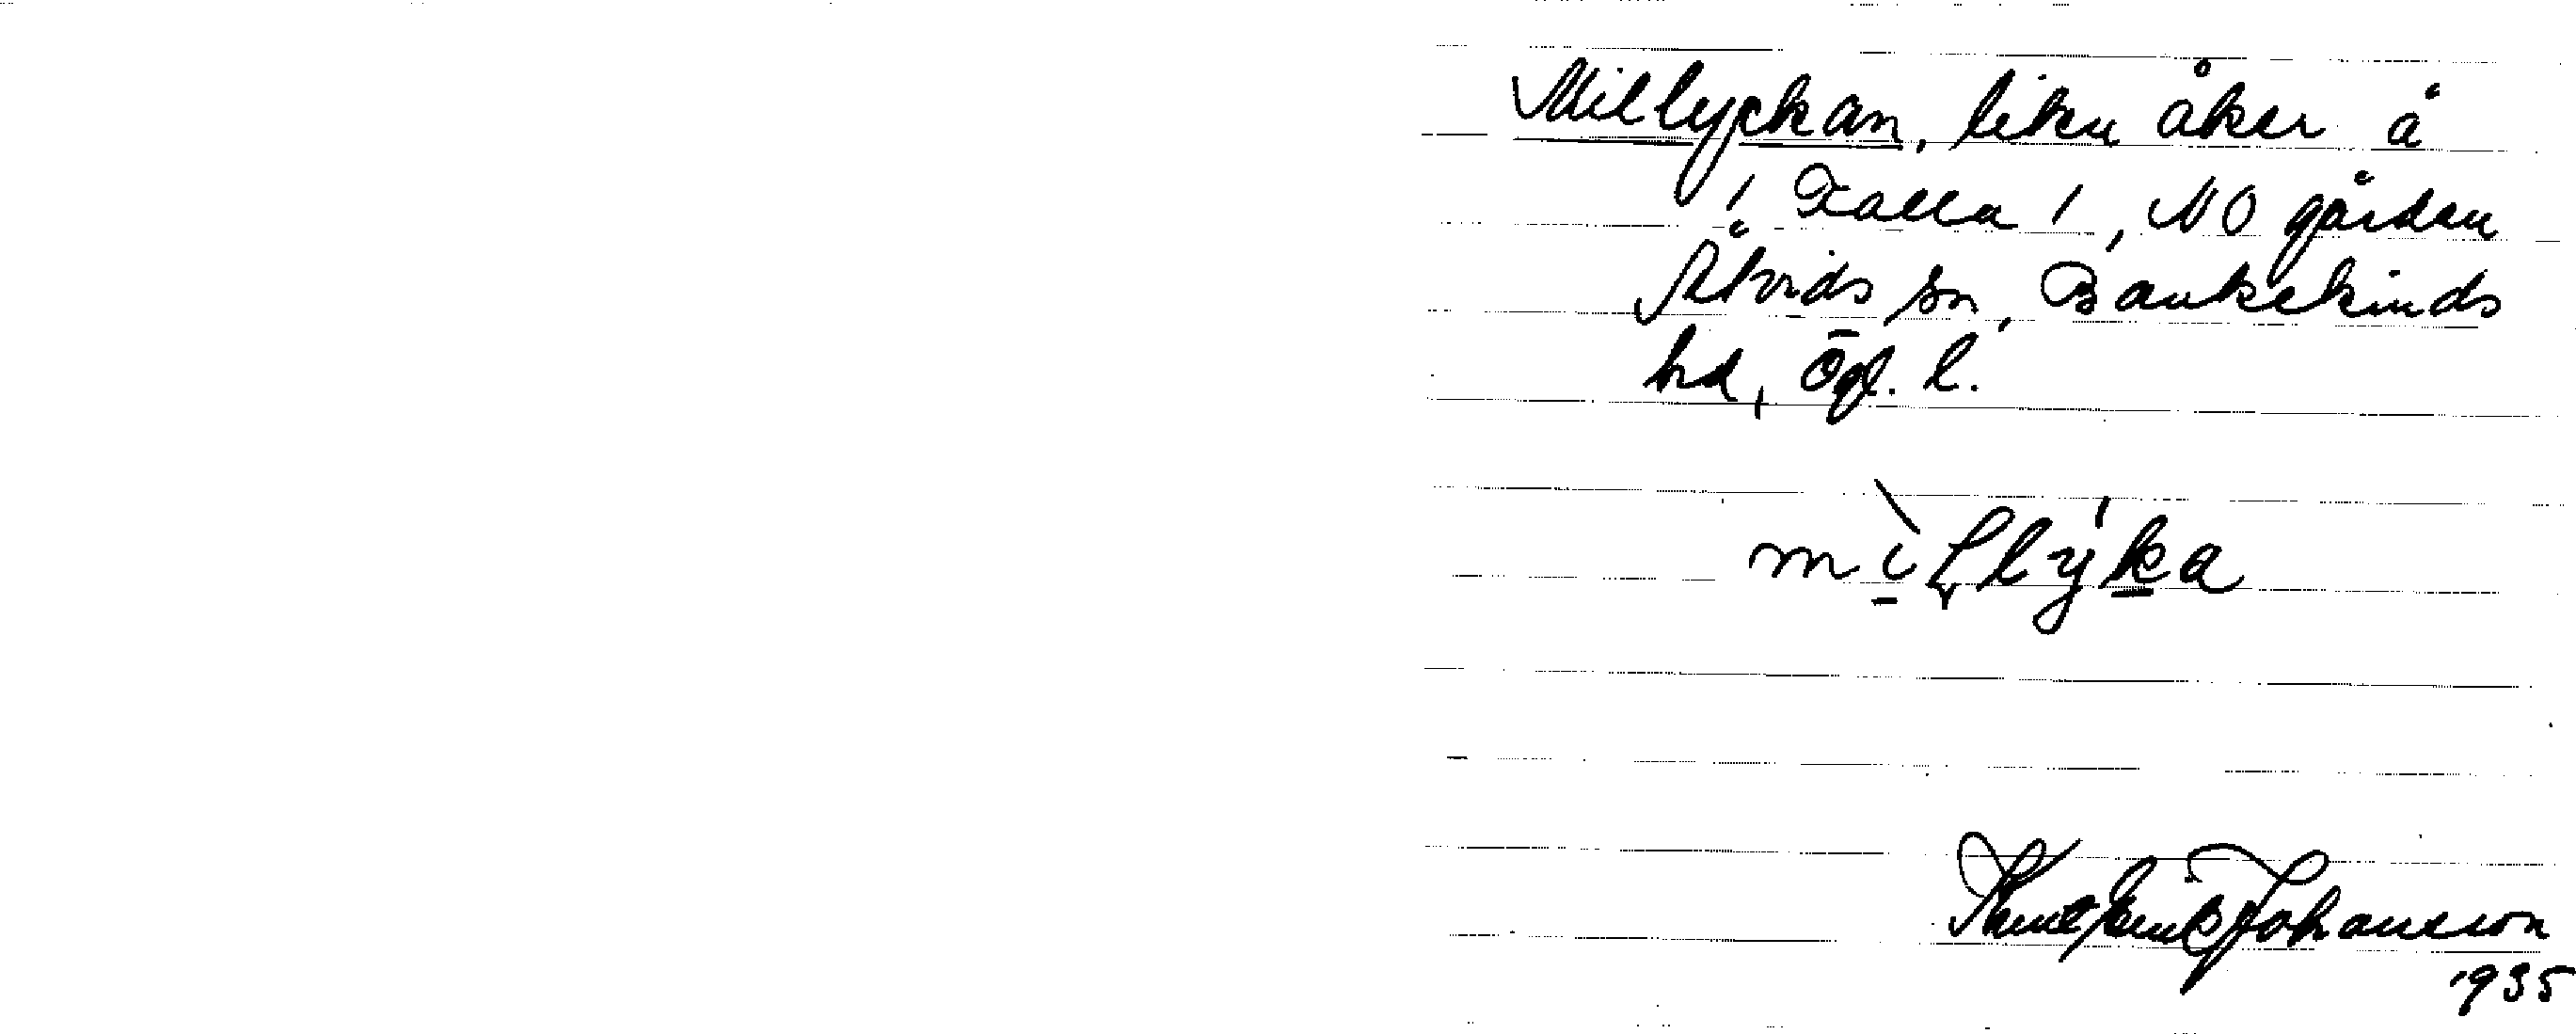 Millyckan, liten åker å
/ Falla /, NO gården
Åtvids sn, Bankekinds
hd, Ögl. l.
mìllýka
Knut Erik Johansson
1935